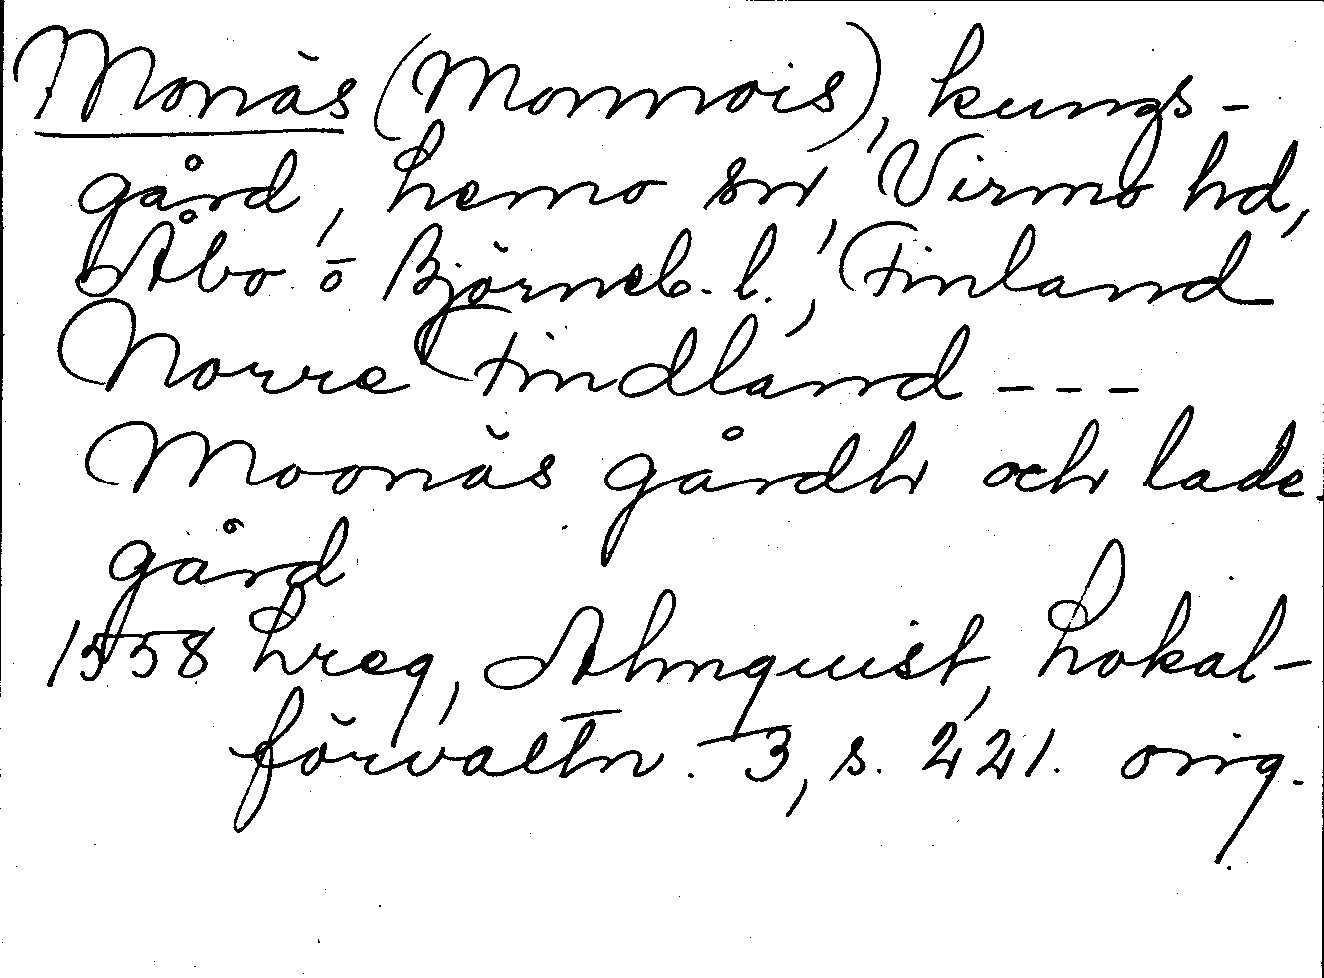 Monäs (Monnois), kungs-
gård, Lemo sn, Virmo hd,
Åbo o Björneb. l., Finland
Norre Findland ---
Moonäs gårdh och lade-
gård
1558 Lreg, Almquist, Lokal-
förvaltn. 3, s. 221. orig.